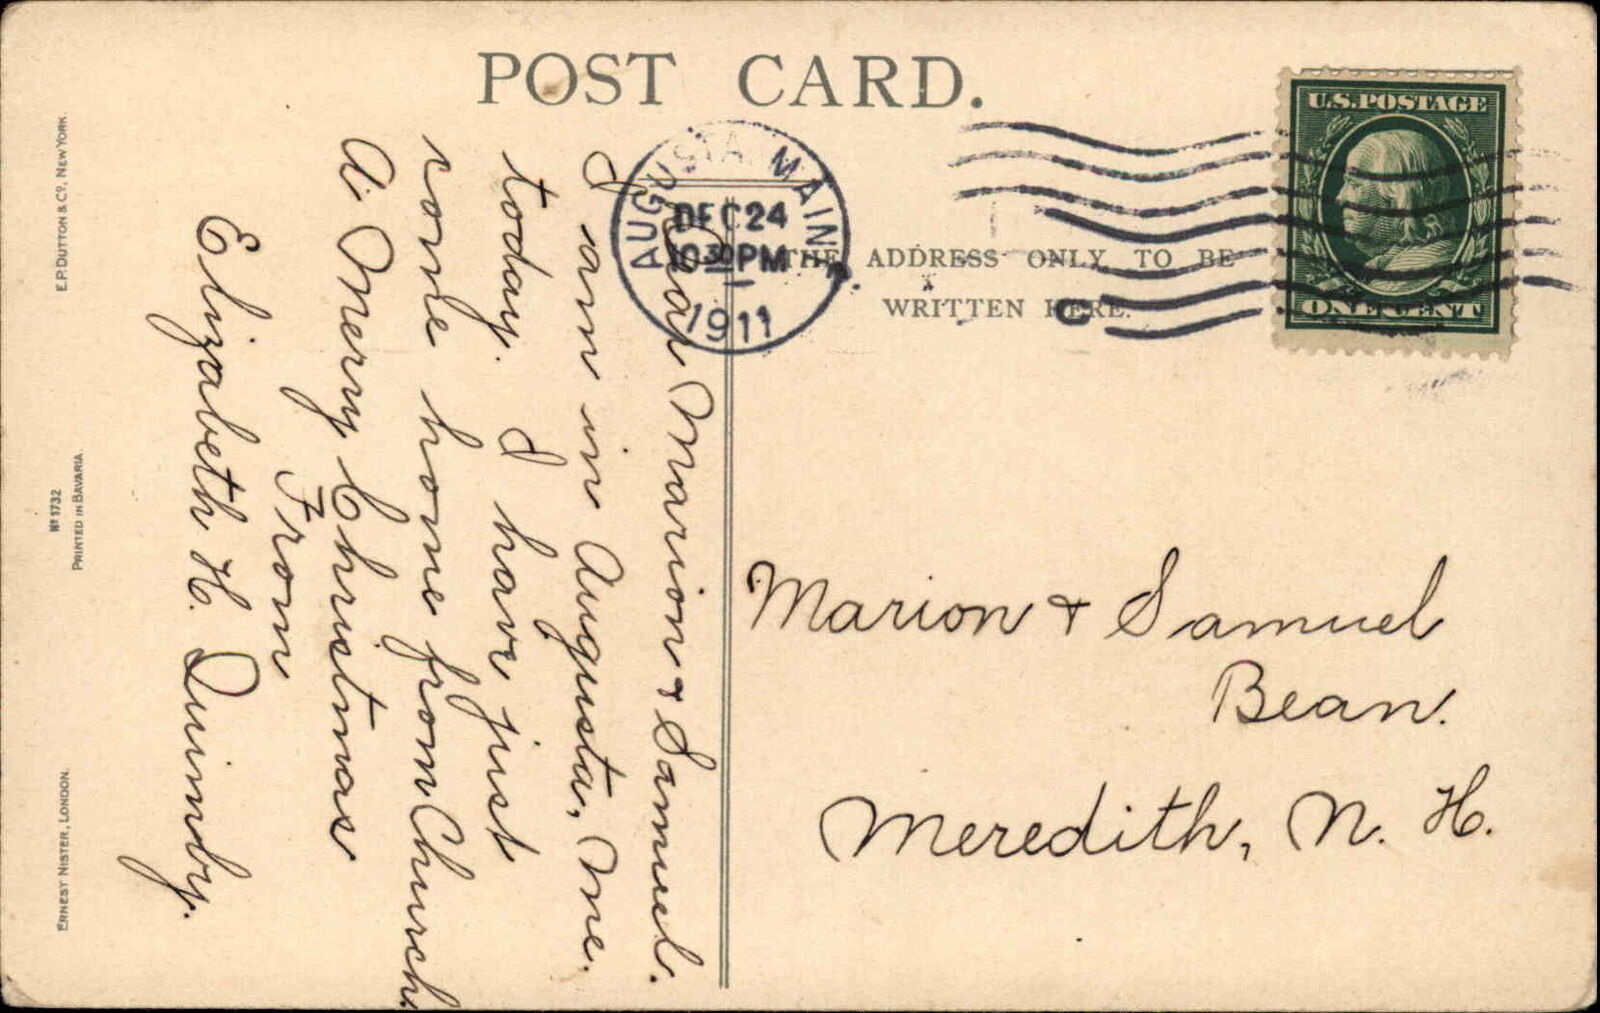 POST CARD.
U.S. POSTAGE
ONE CENT
AUGUSTA, MAINE
DEC 24
10 30 PM
1911
THE ADDRESS ONLY TO BE
WRITTEN HERE.
Dear Marion & Samuel.
I am in Augusta, Me.
today. I have just
come home from Church.
A Merry Christmas
From
Elizabeth H. Quimby.
Marion & Samuel
Bean.
Meredith, N. H.
E.P. DUTTON & Co. NEW YORK.
No 1732
PRINTED IN BAVARIA.
ERNEST NISTER, LONDON.